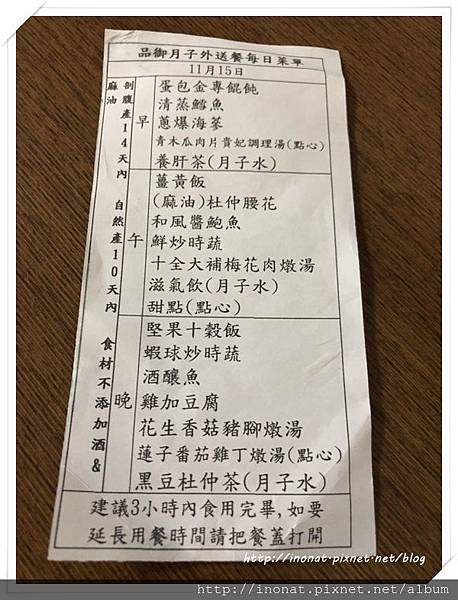 品御月子外送餐每日菜單
11月15日
剖腹產14天內 自然產10天內 食材不添加酒&
麻油
早
蛋包金專餛飩
清蒸鱈魚
蔥爆海蔘
青木瓜肉片貴妃調理湯(點心)
養肝茶(月子水)
午
薑黃飯
(麻油)杜仲腰花
和風醬鮑魚
鮮炒時蔬
十全大補梅花肉燉湯
滋氣飲(月子水)
甜點(點心)
晚
堅果十穀飯
蝦球炒時蔬
酒釀魚
雞加豆腐
花生香菇豬腳燉湯
蓮子番茄雞丁燉湯(點心)
黑豆杜仲茶(月子水)
建議3小時內食用完畢,如要
延長用餐時間請把餐蓋打開
http://inonat.pixnet.net/blog
http://inonat.pixnet.net/album